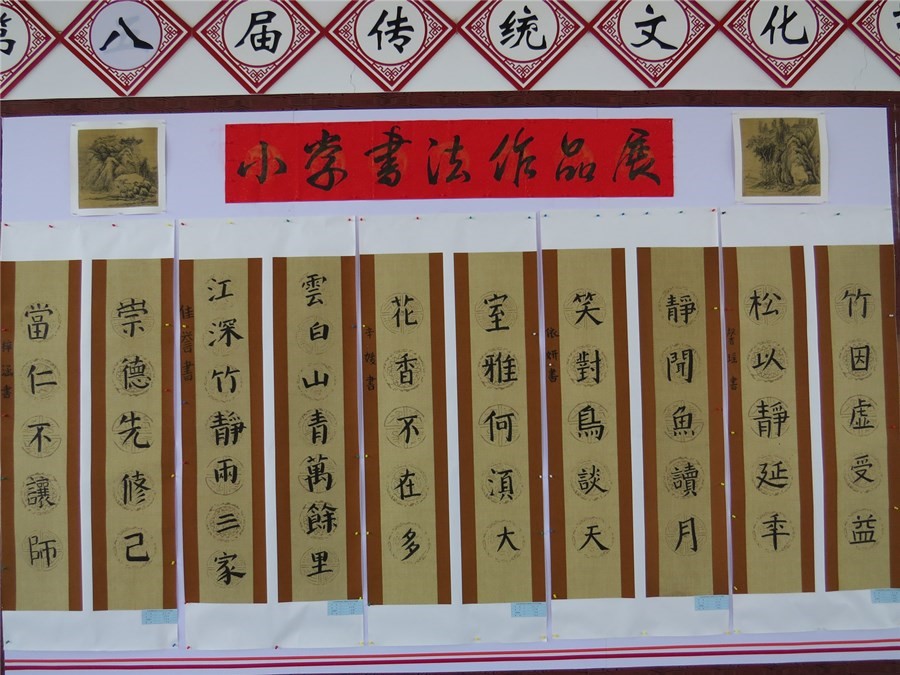 第八届传统文化
小学書法作品展
竹因虚受益
松以靜延年
靜聞魚讀月
笑對鳥談天
依妍書
室雅何湏大
花香不在多
雲白山青萬餘里
江深竹靜兩三家
佳誉書
崇德先修己
當仁不讓師